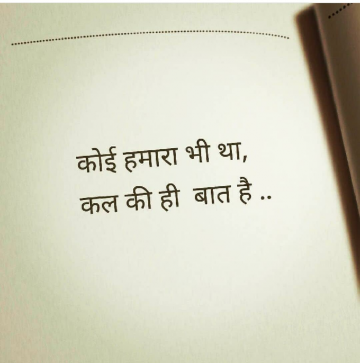 कोई हमारा भी था,
कल की ही बात है ..